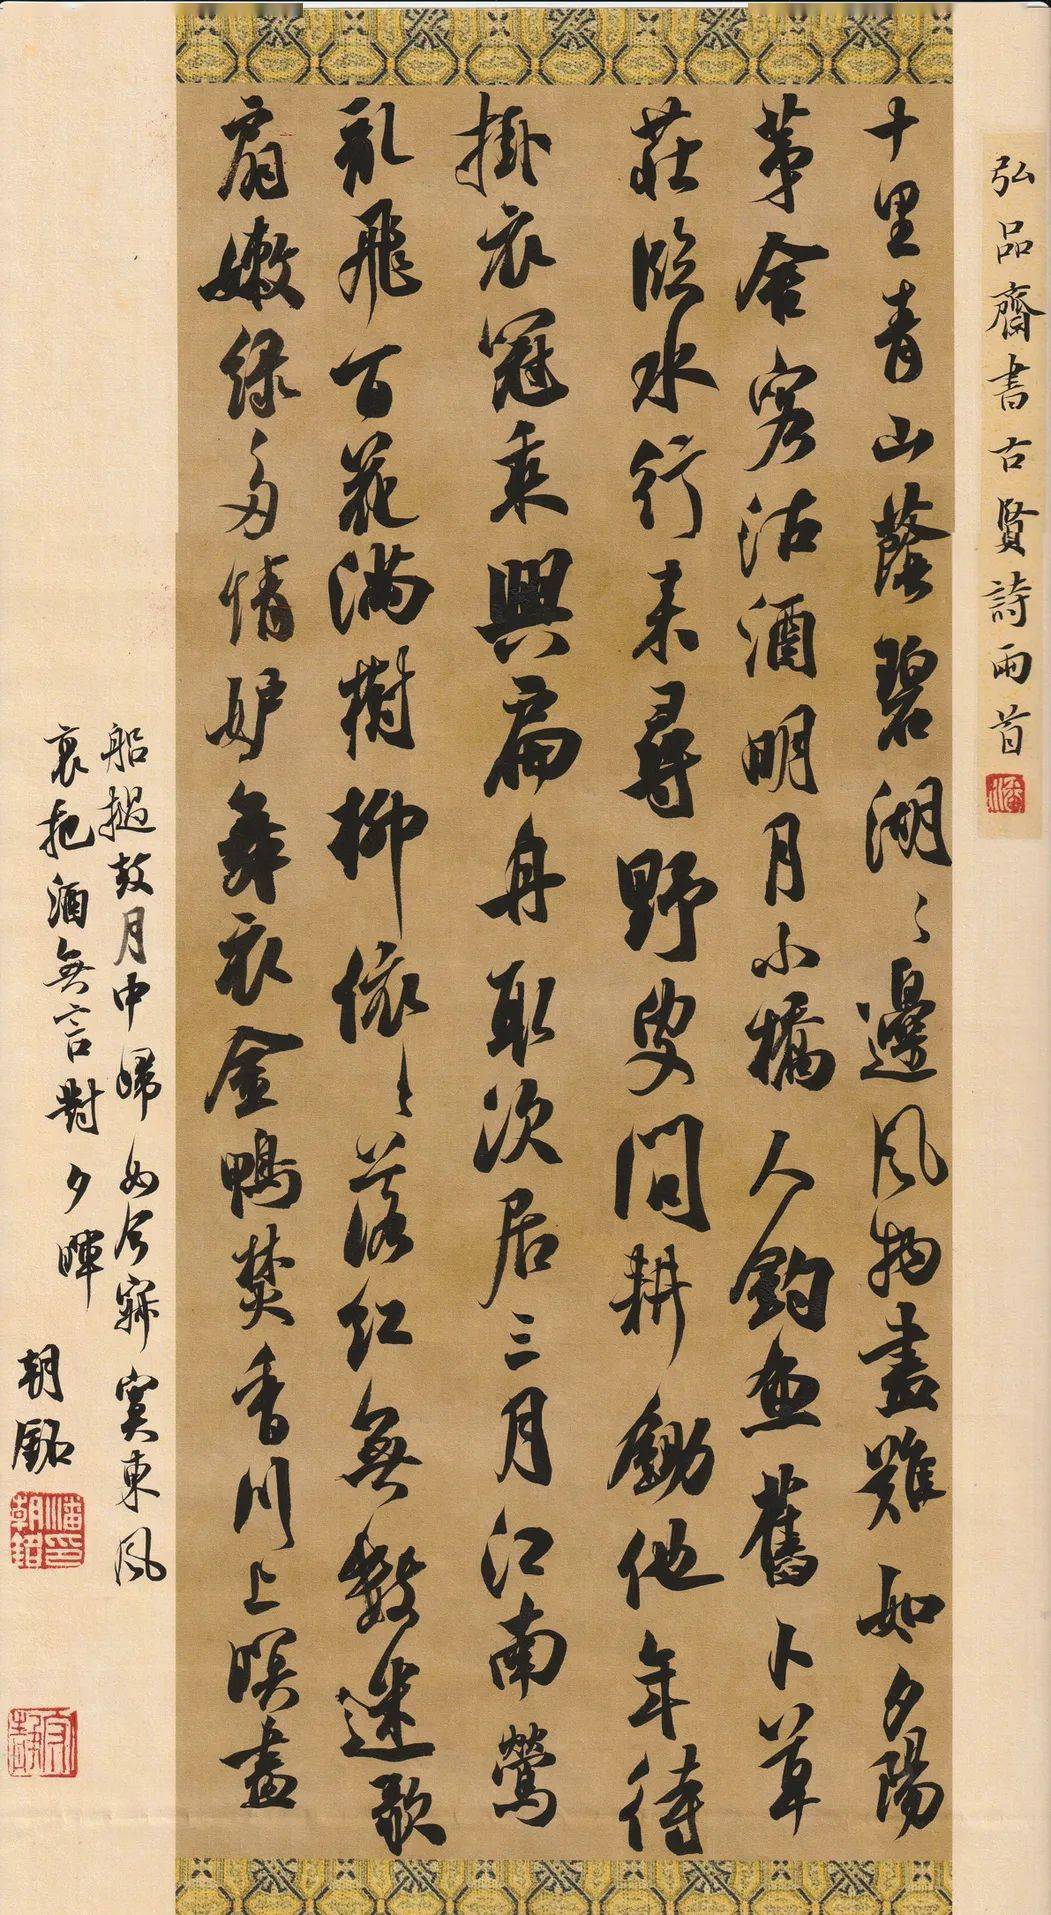 弘品齋書古賢詩兩首
潘
十里青山蔭碧湖〻邊風物畫難如夕陽
茅舍客沽酒明月小橋人釣魚舊卜草
莊臨水竹來尋野叟問耕鋤他年待
掛衣冠乘興扁舟取次居三月江南鶯
亂飛百花滿樹柳依〻落紅無數迷歌
扇嫩綠多情妒舞衣金鴨焚香川上暝畫
船撾鼓月中歸如今寂寞東風
裏把酒無言對夕暉
朝銘
潘印朝銘
守靜